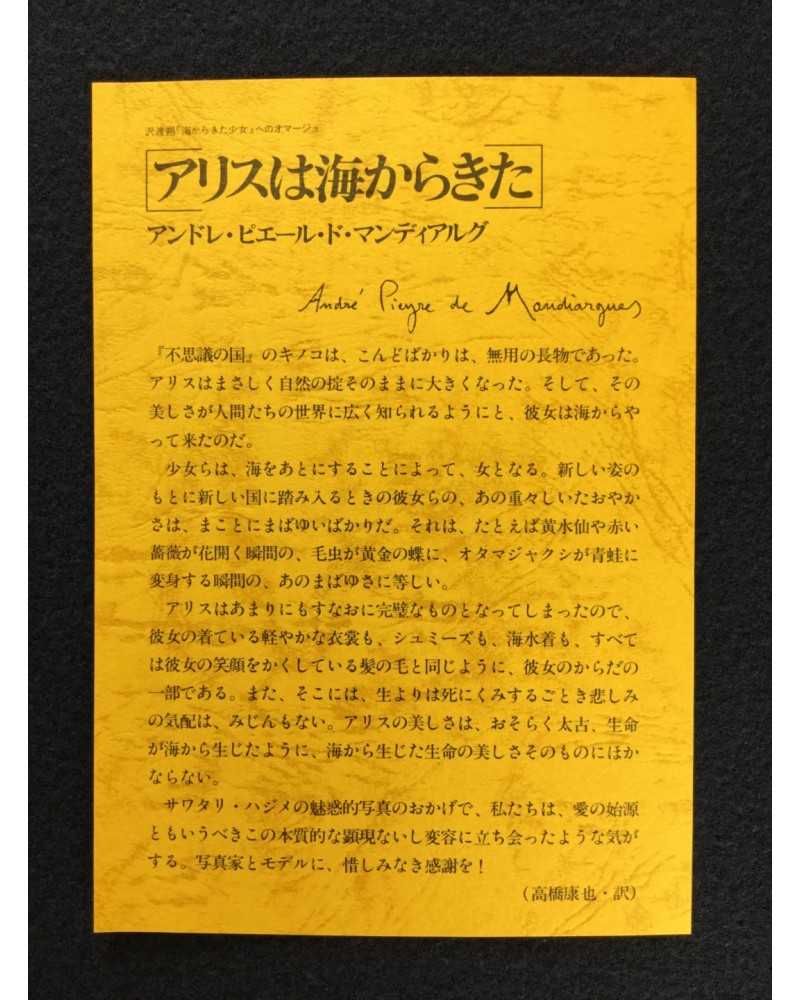 沢渡朔「海からきた少女」へのオマージュ
アリスは海からきた
アンドレ・ピエール・ド・マンディアルグ
André Pieyre de Mandiargues
『不思議の国』のキノコは、こんどばかりは、無用の長物であった。
アリスはまさしく自然の掟そのままに大きくなった。そして、その
美しさが人間たちの世界に広く知られるようにと、彼女は海からや
って来たのだ。
少女らは、海をあとにすることによって、女となる。新しい姿の
もとに新しい国に踏み入るときの彼女らの、あの重々しいたおやか
さは、まことにまばゆいばかりだ。それは、たとえば黄水仙や赤い
薔薇が花開く瞬間の、毛虫が黄金の蝶に、オタマジャクシが青蛙に
変身する瞬間の、あのまばゆさに等しい。
アリスはあまりにもすなおに完璧なものとなってしまったので、
彼女の着ている軽やかな衣裳も、シュミーズも、海水着も、すべて
は彼女の笑顔をかくしている髪の毛と同じように、彼女のからだの
一部である。また、そこには、生よりは死にくみするごとき悲しみ
の気配は、みじんもない。アリスの美しさは、おそらく太古、生命
が海から生じたように、海から生じた生命の美しさそのものにほか
ならない。
サワタリ・ハジメの魅惑的写真のおかげで、私たちは、愛の始源
ともいうべきこの本質的な顕現ないし変容に立ち会ったような気が
する。写真家とモデルに、惜しみなき感謝を！
（高橋康也・訳）